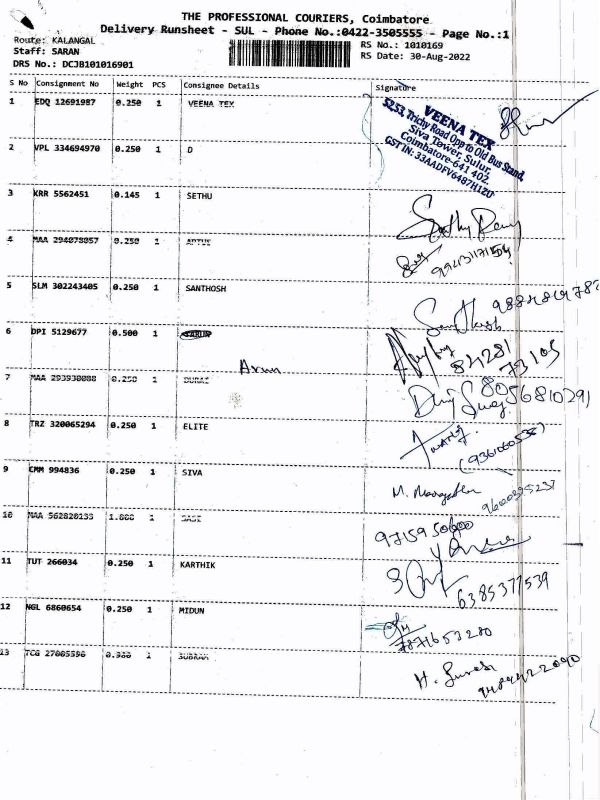 THE PROFESSIONAL COURIERS, Coimbatore
Delivery Runsheet - SUL - Phone No.:0422-3505555 - Page No.:1
Route: KALANGAL
Staff: SARAN
DRS No.: DCJB101016901
RS No.: 1010169
RS Date: 30-Aug-2022
S No Consignment No Weight PCS Consignee Details Signature
1 EDQ 12691987 0.250 1 VEENA TEX
VEENA TEX
5253, Trichy Road Opp to Old Bus Stand,
Siva Tower, Sulur,
Coimbatore-641 402
GST IN: 33AADFV6487H1Z0
2 VPL 334694970 0.250 1 D
3 KRR 5562451 0.145 1 SETHU
4 MAA 294078057 0.250 1
5 SLM 302243405 0.250 1 SANTHOSH
Santhosh
6 DPI 5129677 0.500 1
84281
73105
Arun
7 MAA 293930088 0.250 1 DURAI
8056810291
8 TRZ 320065294 0.250 1 ELITE
9 CMM 994836 0.250 1 SIVA
9600395237
10 MAA 562820133 1.000 1 SASI
9715950600
11 TUT 266034 0.250 1 KARTHIK
6385377539
12 NGL 6860654 0.250 1 MIDUN
7871653280
13 TCG 27085590 0.300 1